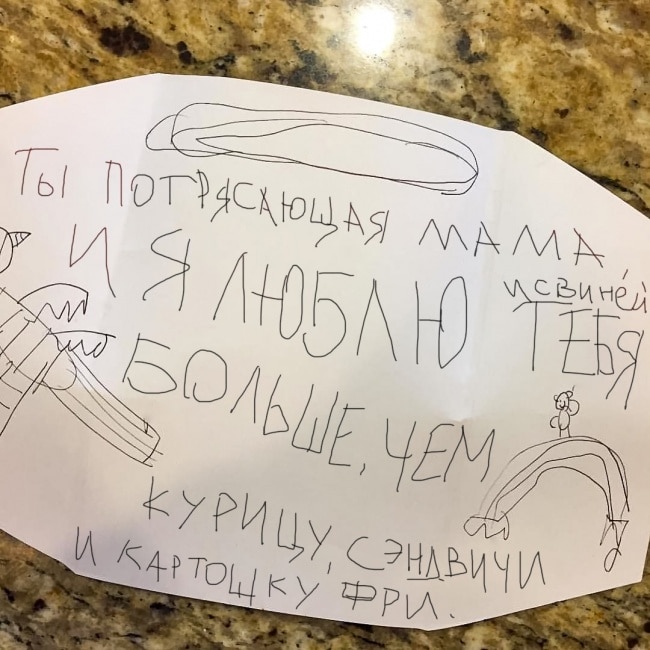 Ты ПОТРЯСАЮЩАЯ МАМА,
И Я ЛЮБЛЮ ТЕБЯ
и свиней
БОЛЬШЕ, ЧЕМ
КУРИЦУ, СЭНДВИЧИ
И КАРТОШКУ ФРИ.